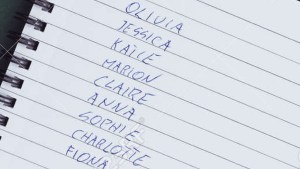 OLIVIA
JESSICA
KAÏCE
MARION
CLAIRE
ANNA
SOPHIE
CHARLOTTE
FIONA